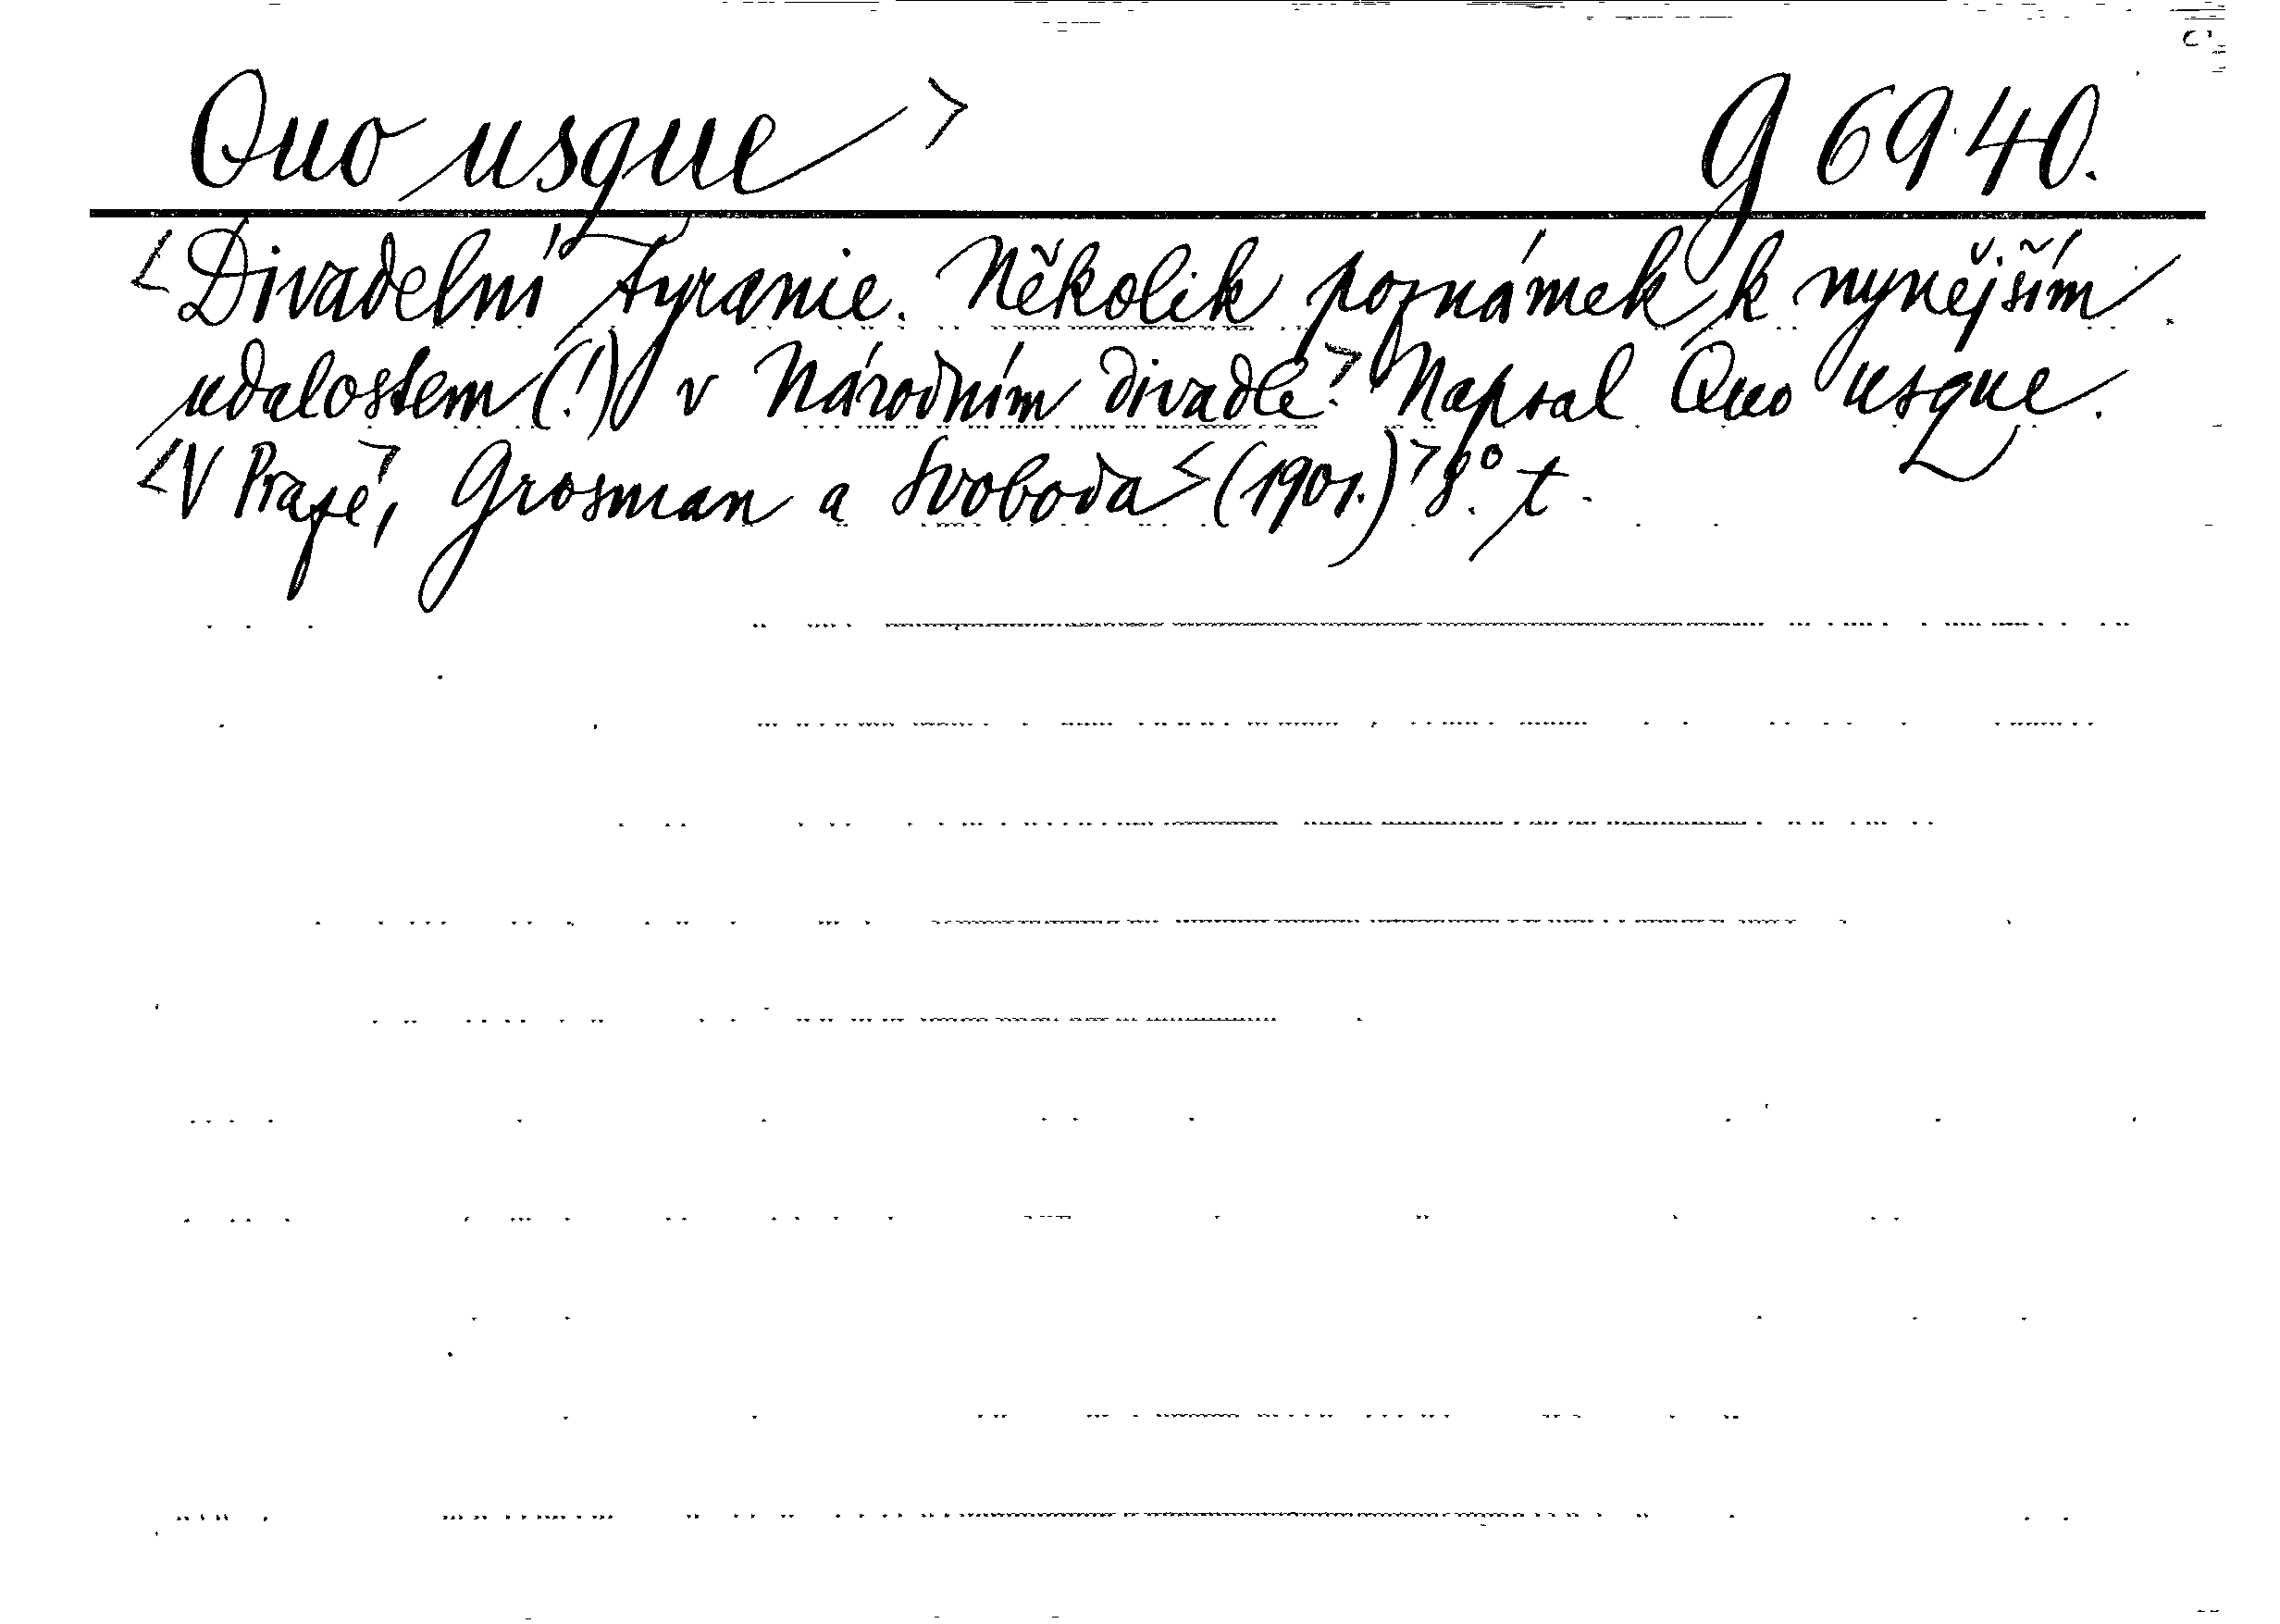 Quo usque > g 69.40.
<Divadelní tyranie. Několik poznámek k nynějším
udalostem (!) v Národním divadle.> Napsal Quo usque.
<V Praze>, Grosman a Svoboda <(1901.)> 8°. t.